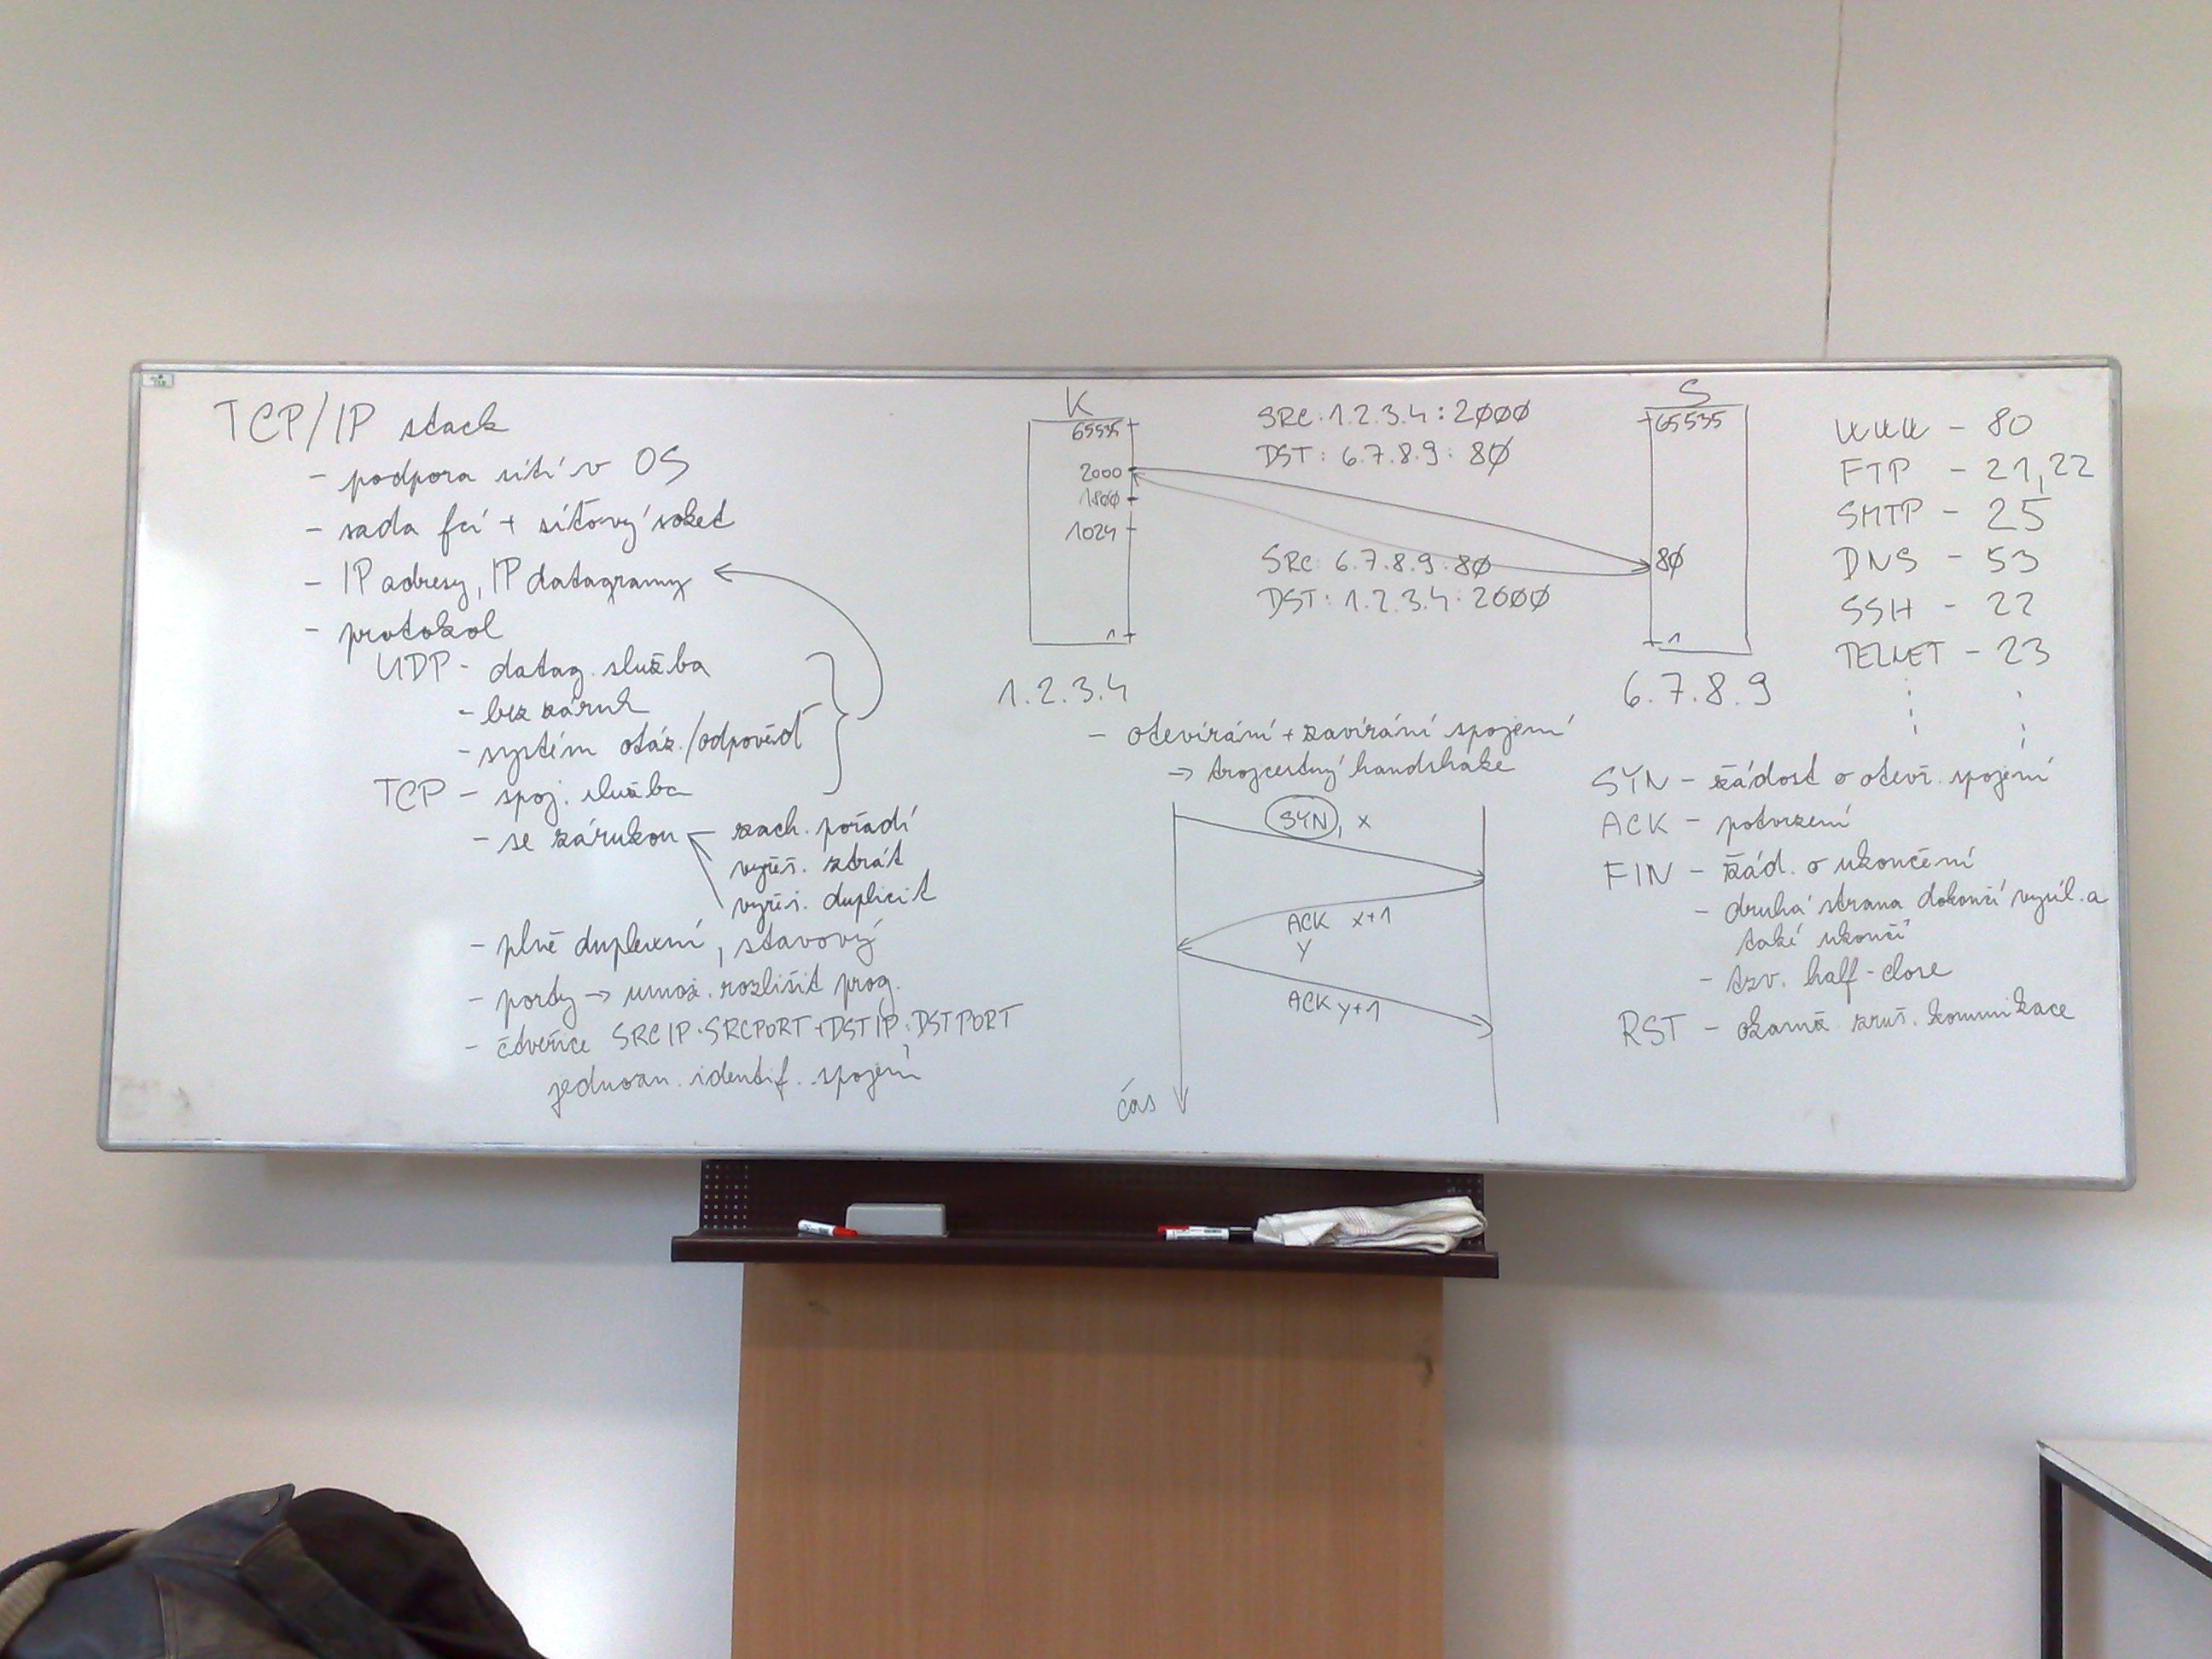 TCP/IP stack
- podpora sítí v OS
- sada fcí + síťový soket
- IP adresy, IP datagramy
- protokol
UDP - datag. služba
- bez záruk
- systém otáz./odpověď
TCP - spoj. služba
- se zárukou
zach. pořadí
vyřeš. ztrát
vyřeš. duplicit
- plně duplexní, stavový
- porty → umož. rozlišit prog.
- čtveřice SRCIP:SRCPORT+DSTIP:DSTPORT
jednozn. identif. spojení
K
65535
2000
1800
1024
1
1.2.3.4
SRC: 1.2.3.4:2000
DST: 6.7.8.9:80
SRC: 6.7.8.9:80
DST: 1.2.3.4:2000
S
65535
80
1
6.7.8.9
- otevírání + zavírání spojení
→ trojcestný handshake
SYN, x
ACK x+1
y
ACK y+1
čas
WWW - 80
FTP - 21,22
SMTP - 25
DNS - 53
SSH - 22
TELNET - 23
SYN - žádost o otevř. spojení
ACK - potvrzení
FIN - žád. o ukončení
- druhá strana dokončí vysíl. a
také ukončí
- tzv. half-close
RST - okamž. zruš. komunikace